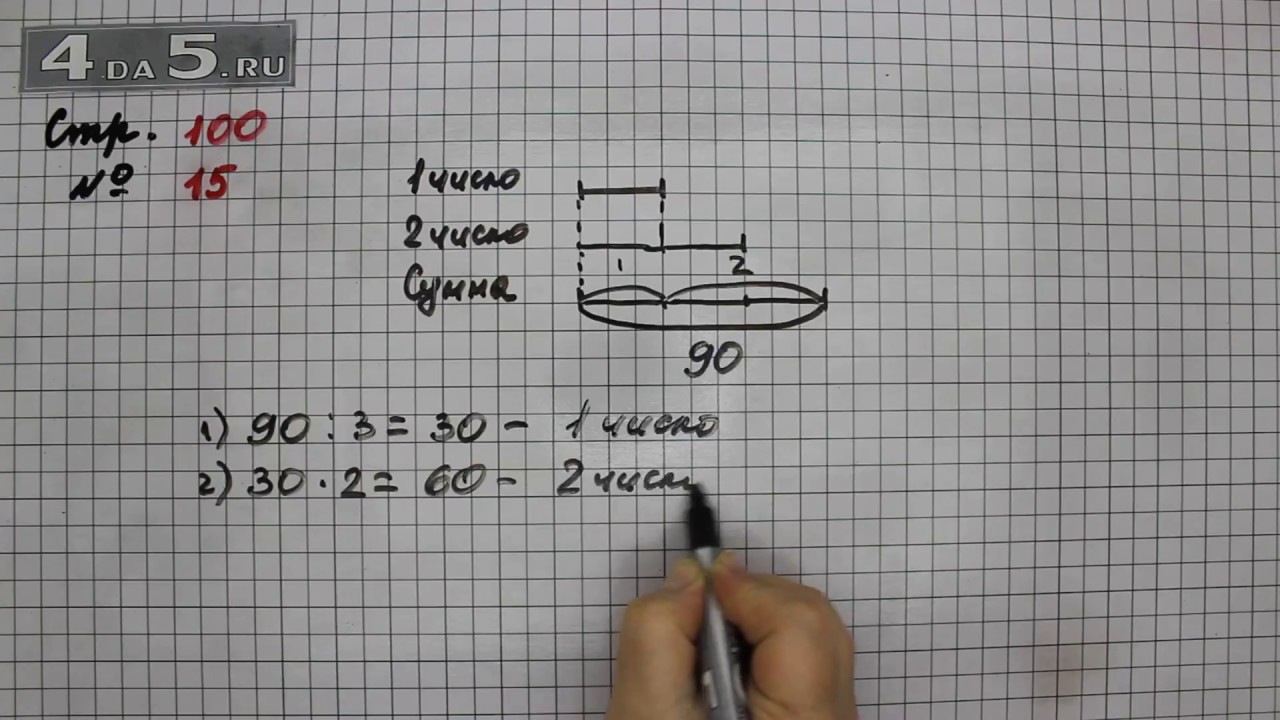 4DA5.RU
Стр. 100
№ 15
1 число
2 число
1 2
Сумма
90
1) 90 : 3 = 30 - 1 число
2) 30 · 2 = 60 - 2 число